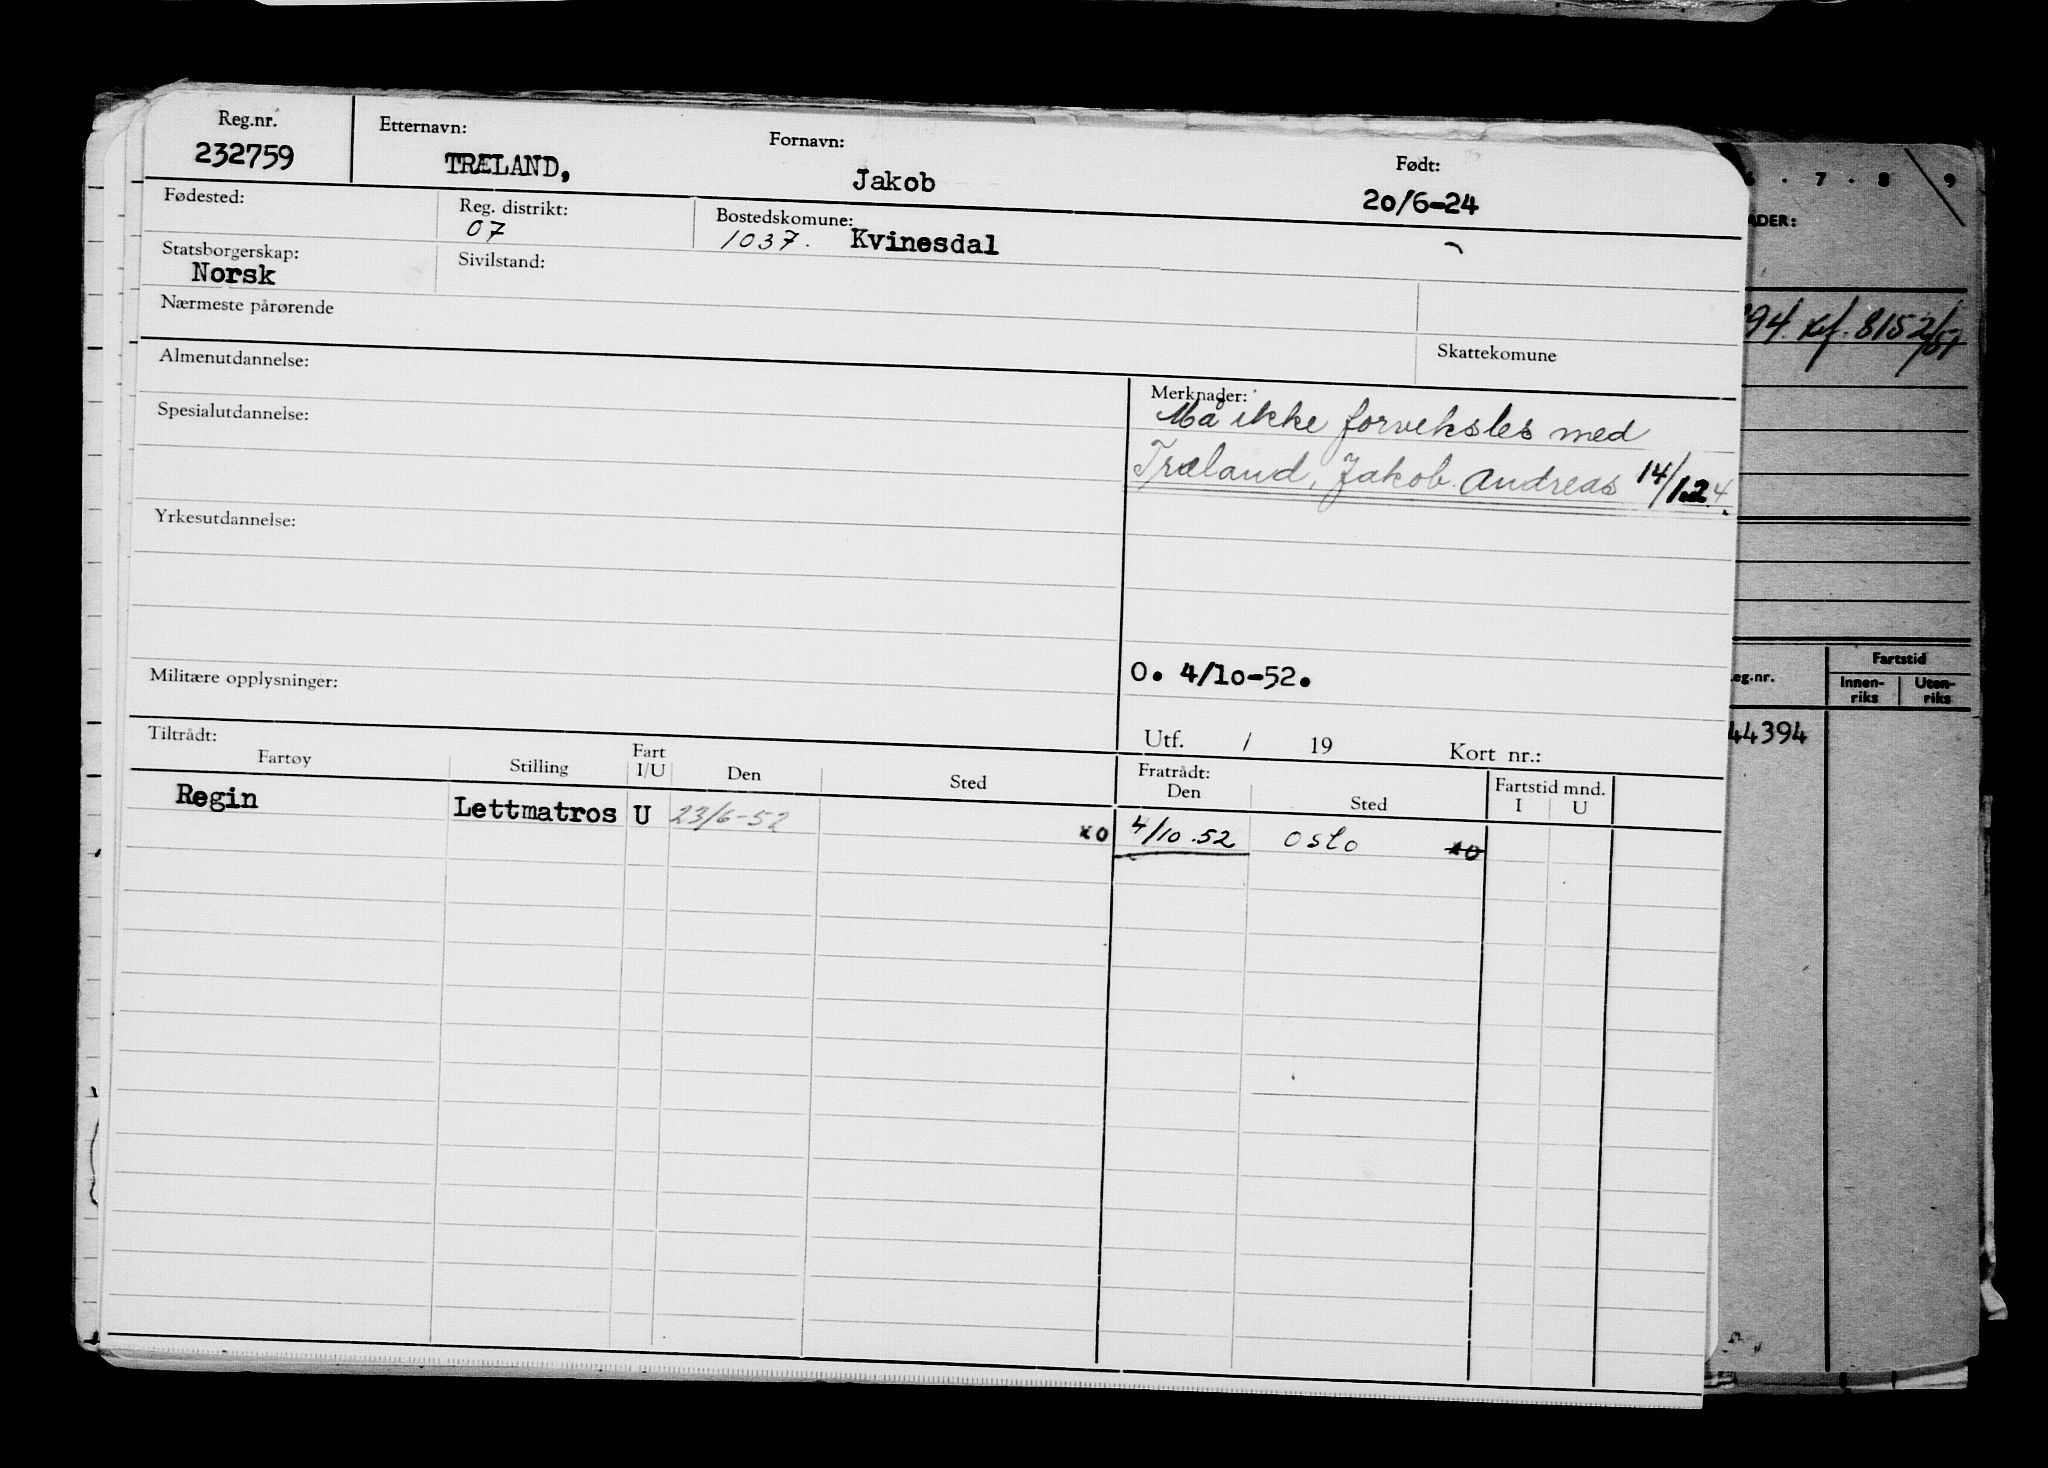 Reg.nr. Etternavn: Fornavn: Født:
232759 TRÆLAND, Jakob 20/6-24
Fødested: Reg. distrikt: 07 Bostedskomune: 1037. Kvinesdal
Statsborgerskap: Norsk Sivilstand:
Nærmeste pårørende
Almenutdannelse: Skattekomune
Merknader:
Må ikke forveksles med
Træland, Jakob Andreas 14/1.24.
Spesialutdannelse:
Yrkesutdannelse:
Militære opplysninger: O. 4/10-52.
Utf. / 19 Kort nr.:
Tiltrådt: Fratrådt:
Fartøy Stilling Fart I/U Den Sted Den Sted Fartstid mnd. I U
Regin Lettmatros U 23/6-52 xo 4/10.52 Oslo xo
6 . 7 . 8 9
ADER:
94. kf. 8152/51
eg.nr. Fartstid
Innen-riks Uten-riks
44394